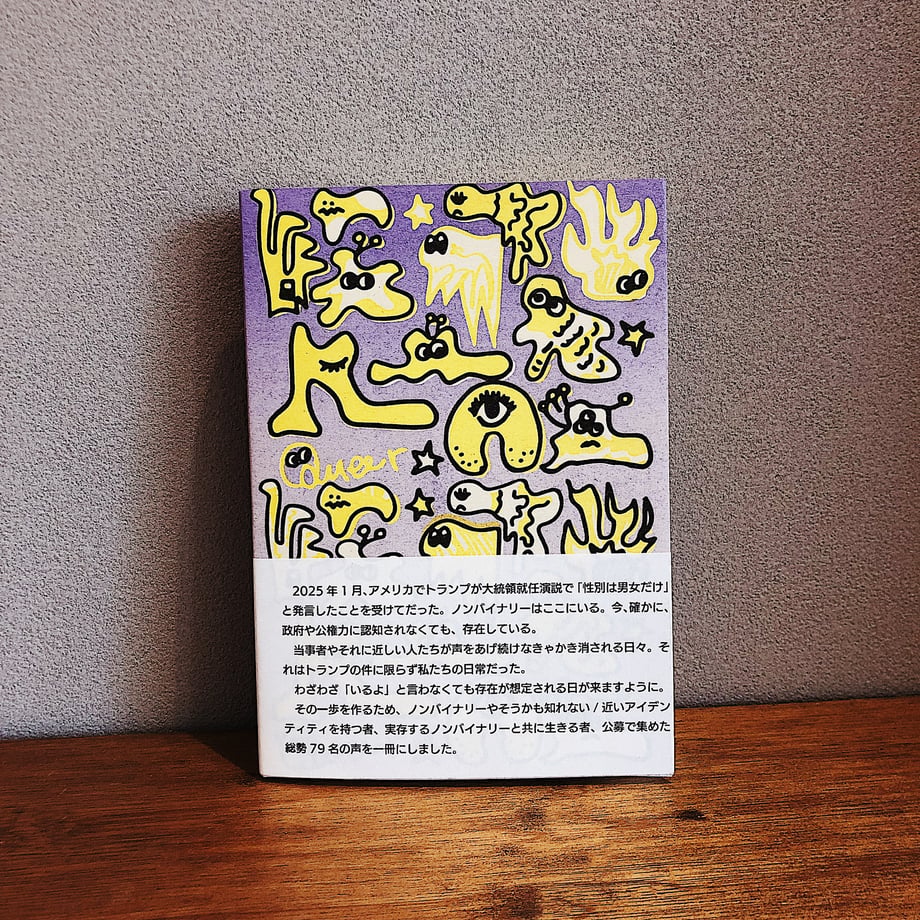 Queer
2025年1月、アメリカでトランプが大統領就任演説で「性別は男女だけ」
と発言したことを受けてだった。ノンバイナリーはここにいる。今、確かに、
政府や公権力に認知されなくても、存在している。
当事者やそれに近しい人たちが声をあげ続けなきゃかき消される日々。そ
れはトランプの件に限らず私たちの日常だった。
わざわざ「いるよ」と言わなくても存在が想定される日が来ますように。
その一歩を作るため、ノンバイナリーやそうかも知れない/近いアイデン
ティティを持つ者、実存するノンバイナリーと共に生きる者、公募で集めた
総勢79名の声を一冊にしました。